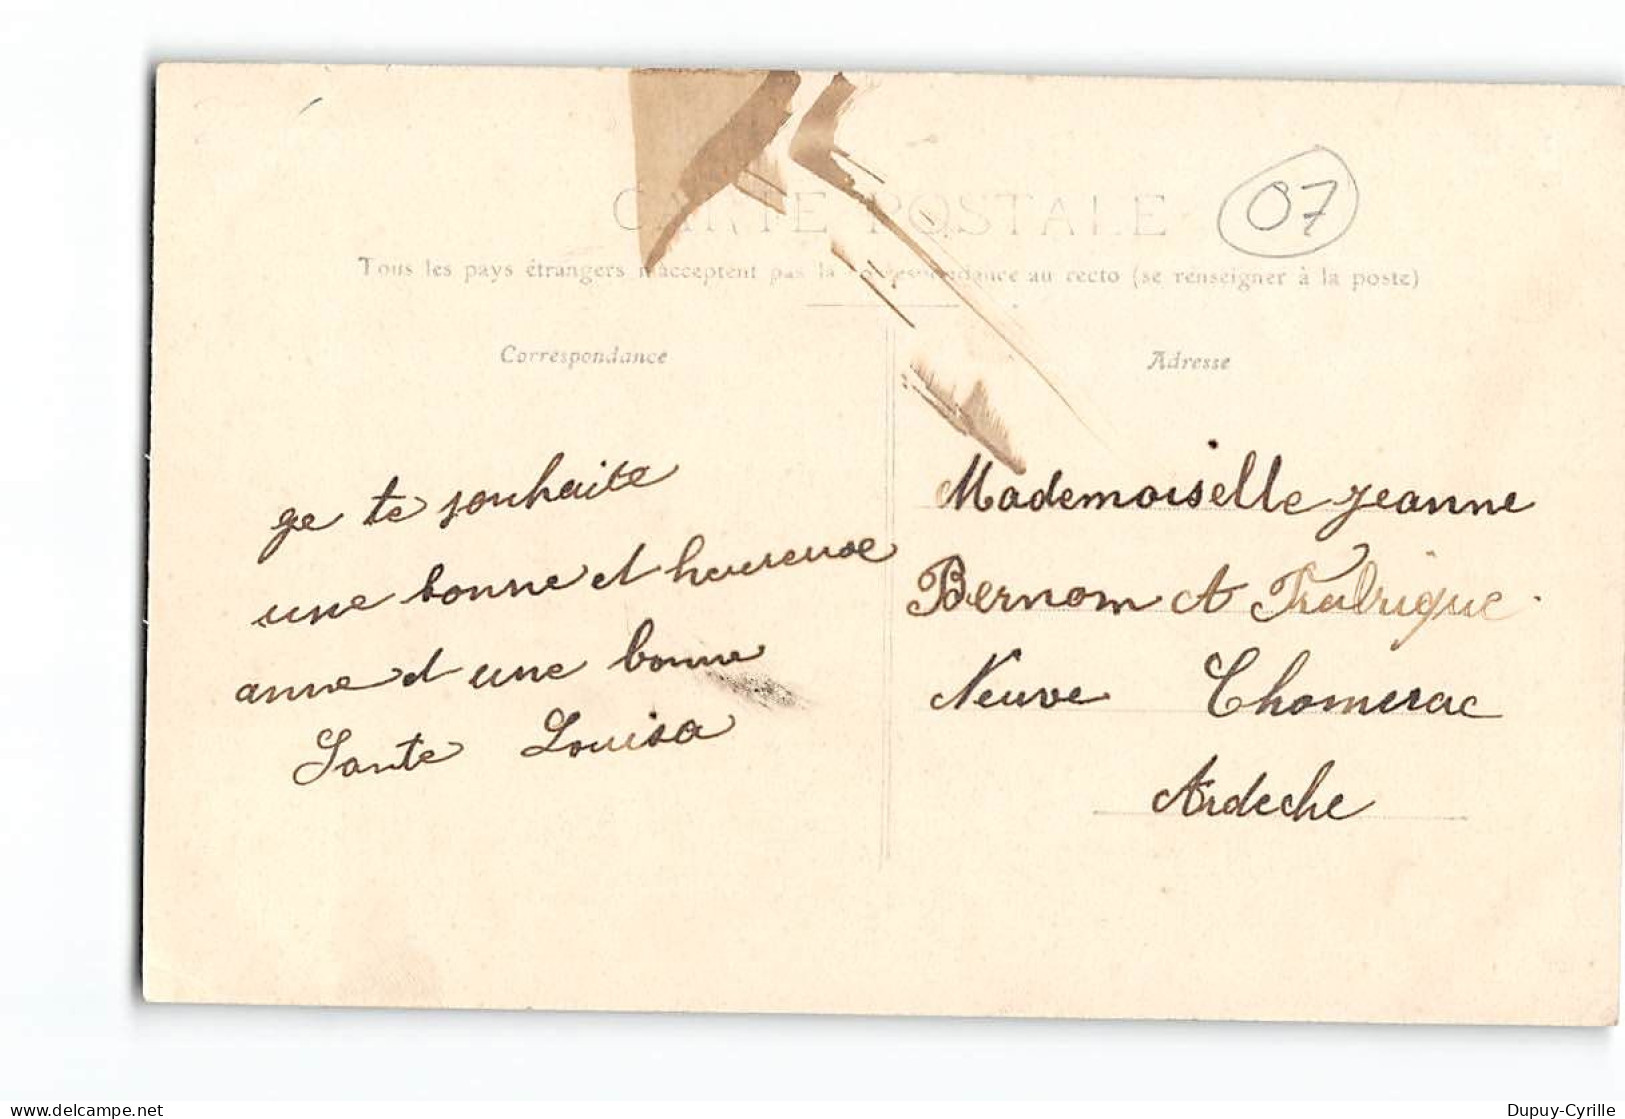 07
CARTE POSTALE
Tous les pays étrangers n'acceptent pas la correspondance au recto (se renseigner à la poste)
Correspondance
ge te souhaite
une bonne et heureuse
anne et une bonne
Sante Louisa
Adresse
Mademoiselle Jeanne
Bernom A Frabrique
Neuve Chomerac
Ardeche
www.delcampe.net
Dupuy-Cyrille